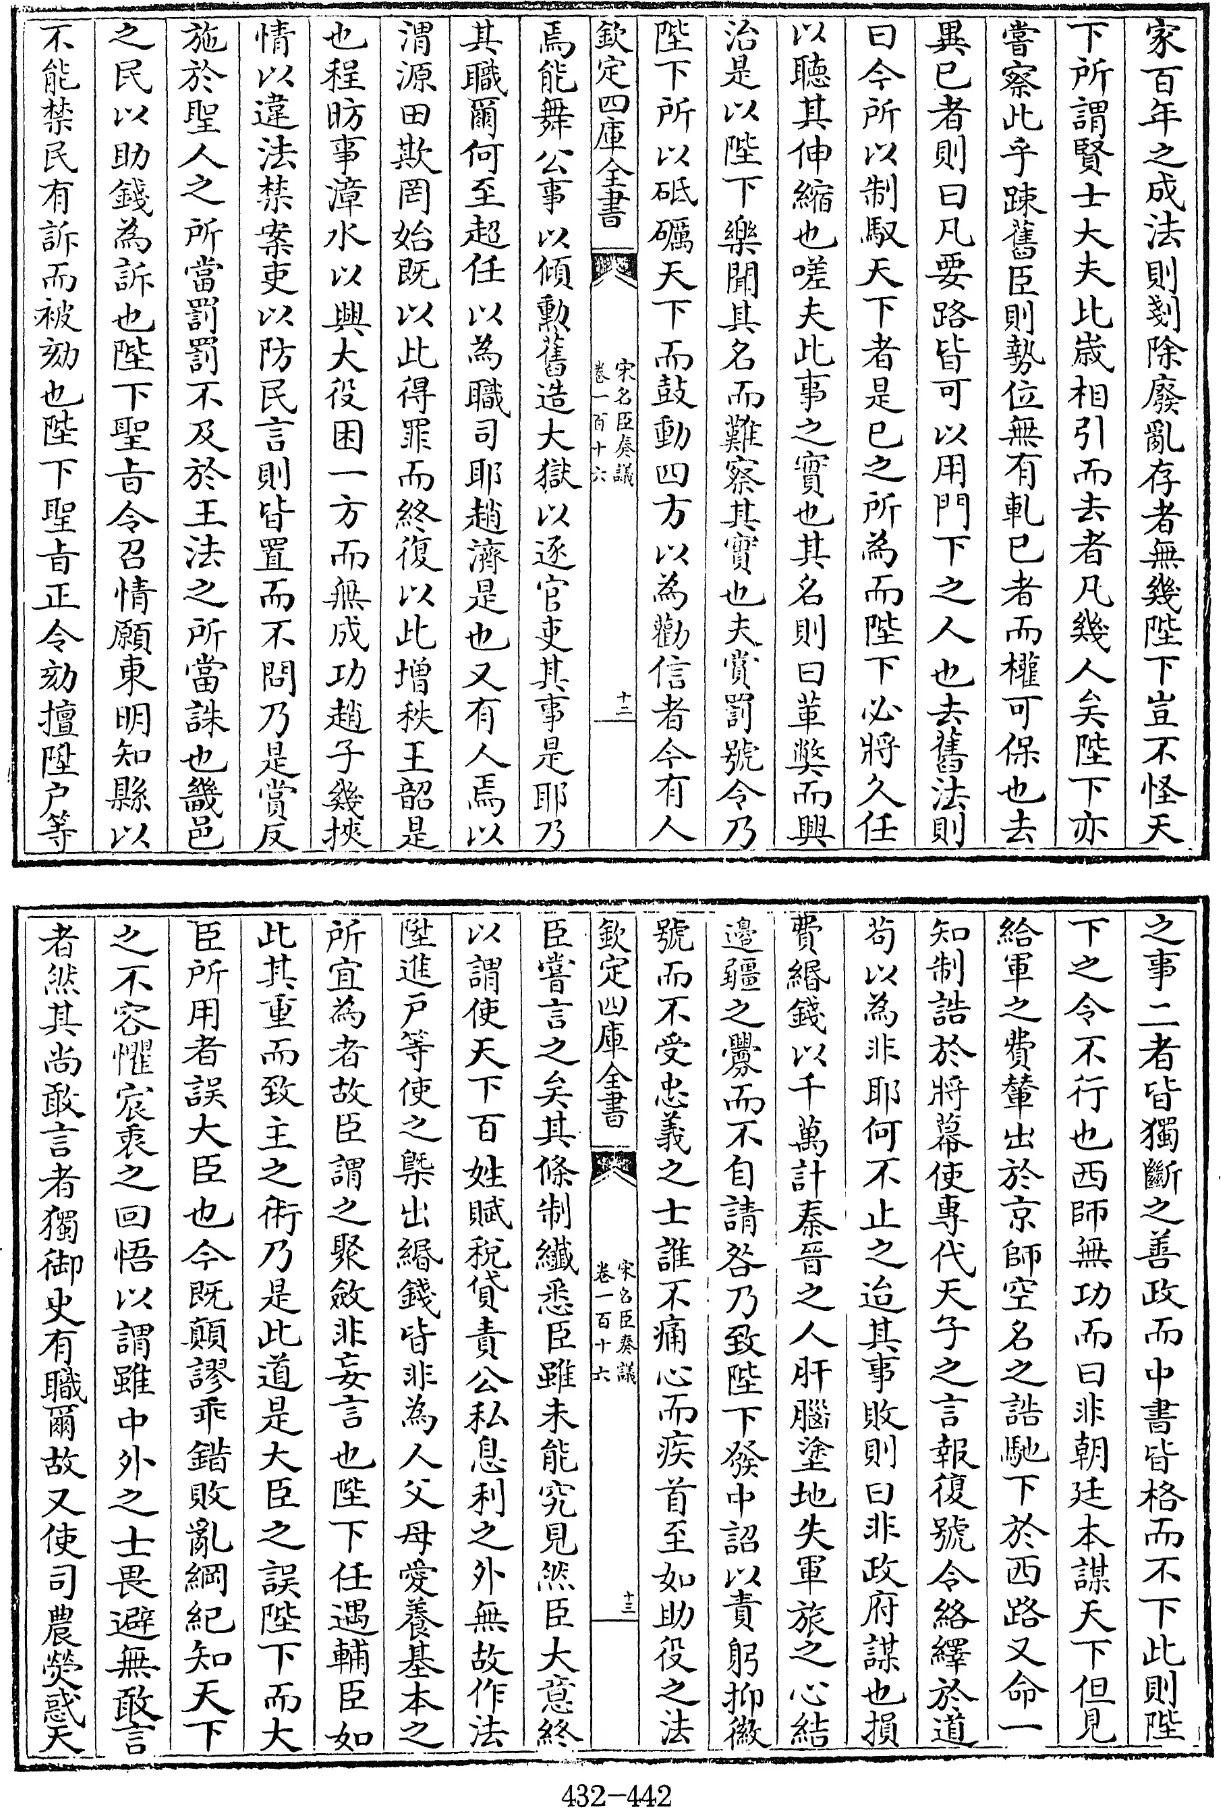 家百年之成法則剗除廢亂存者無幾陛下豈不怪天
下所謂賢士大夫比歲相引而去者凡幾人矣陛下亦
嘗察此乎踈舊臣則勢位無有軋已者而權可保也去
異已者則曰凡要路皆可以用門下之人也去舊法則
曰今所以制馭天下者是已之所為而陛下必將久任
以聽其伸縮也嗟夫此事之實也其名則曰革獘而興
治是以陛下樂聞其名而難察其實也夫賞罰號令乃
陛下所以砥礪天下而鼓動四方以為勸信者今有人
欽定四庫全書
宋名臣奏議
卷一百十六
十二
焉能舞公事以傾勲舊造大獄以逐官吏其事是耶乃
其職爾何至超任以為職司耶趙濟是也又有人焉以
渭源田欺罔始既以此得罪而終復以此增秩王韶是
也程昉事漳水以興大役困一方而無成功趙子幾挾
情以違法禁案吏以防民言則皆置而不問乃是賞反
施於聖人之所當罰罰不及於王法之所當誅也畿邑
之民以助錢為訴也陛下聖㫖令召情願東明知縣以
不能禁民有訴而被劾也陛下聖㫖正令劾擅陞户等
之事二者皆獨斷之善政而中書皆格而不下此則陛
下之令不行也西師無功而曰非朝廷本謀天下但見
給軍之費輦出於京師空名之誥馳下於西路又命一
知制誥於將幕使專代天子之言報復號令絡繹於道
苟以為非耶何不止之迨其事敗則曰非政府謀也損
費緡錢以千萬計秦晉之人肝腦塗地失軍旅之心結
邊疆之釁而不自請咎乃致陛下發中詔以責躬抑徽
號而不受忠義之士誰不痛心而疾首至如助役之法
欽定四庫全書
宋名臣奏議
卷一百十六
十三
臣嘗言之矣其條制纖悉臣雖未能究見然臣大意終
以謂使天下百姓賦稅貸責公私息利之外無故作法
陞進户等使之槩出緡錢皆非為人父母愛養基本之
所宜為者故臣謂之聚斂非妄言也陛下任遇輔臣如
此其重而致主之術乃是此道是大臣之誤陛下而大
臣所用者誤大臣也今既顛謬乖錯敗亂綱紀知天下
之不容懼宸衷之回悟以謂雖中外之士畏避無敢言
者然其尚敢言者獨御史有職爾故又使司農熒惑天
432-442